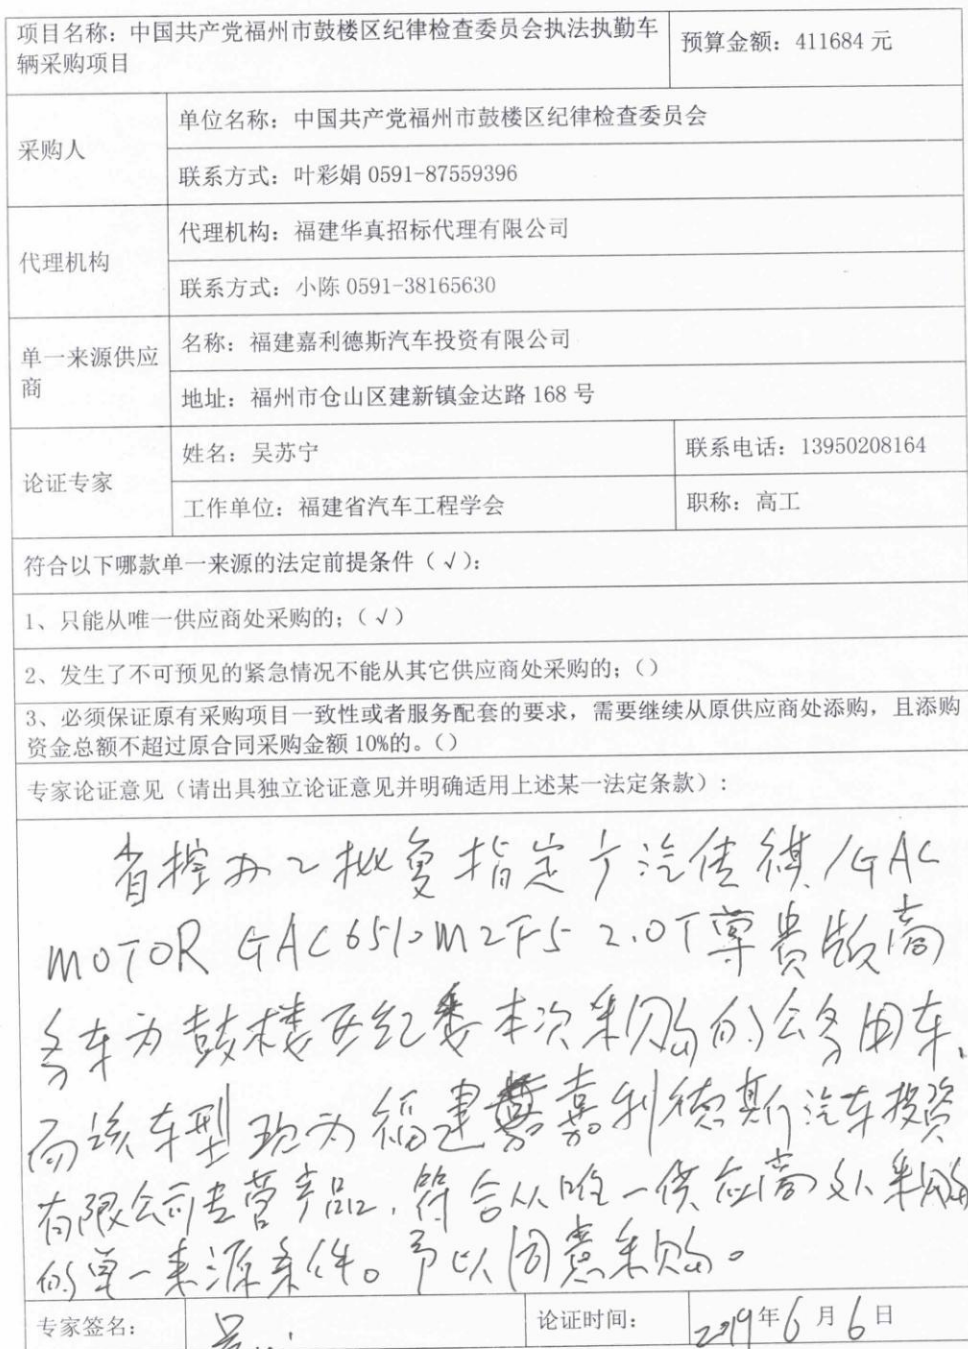 项目名称：中国共产党福州市鼓楼区纪律检查委员会执法执勤车
辆采购项目
预算金额：411684 元
采购人
单位名称：中国共产党福州市鼓楼区纪律检查委员会
联系方式：叶彩娟 0591-87559396
代理机构
代理机构：福建华真招标代理有限公司
联系方式：小陈 0591-38165630
单一来源供应
商
名称：福建嘉利德斯汽车投资有限公司
地址：福州市仓山区建新镇金达路 168 号
论证专家
姓名：吴苏宁
联系电话：13950208164
工作单位：福建省汽车工程学会
职称：高工
符合以下哪款单一来源的法定前提条件（√）：
1、只能从唯一供应商处采购的；（√）
2、发生了不可预见的紧急情况不能从其它供应商处采购的；（）
3、必须保证原有采购项目一致性或者服务配套的要求，需要继续从原供应商处添购，且添购
资金总额不超过原合同采购金额 10%的。（）
专家论证意见（请出具独立论证意见并明确适用上述某一法定条款）：
省控办已批复指定广汽传祺/GAC
MOTOR GAC6510M2F5 2.0T尊贵版商
务车为鼓楼区纪委本次采购的公务用车，
而该车型现为福建嘉利德斯汽车投资
有限公司专营产品，符合从唯一供应商处采购
的单一来源条件。予以同意采购。
专家签名：
论证时间：
2019年6月6日